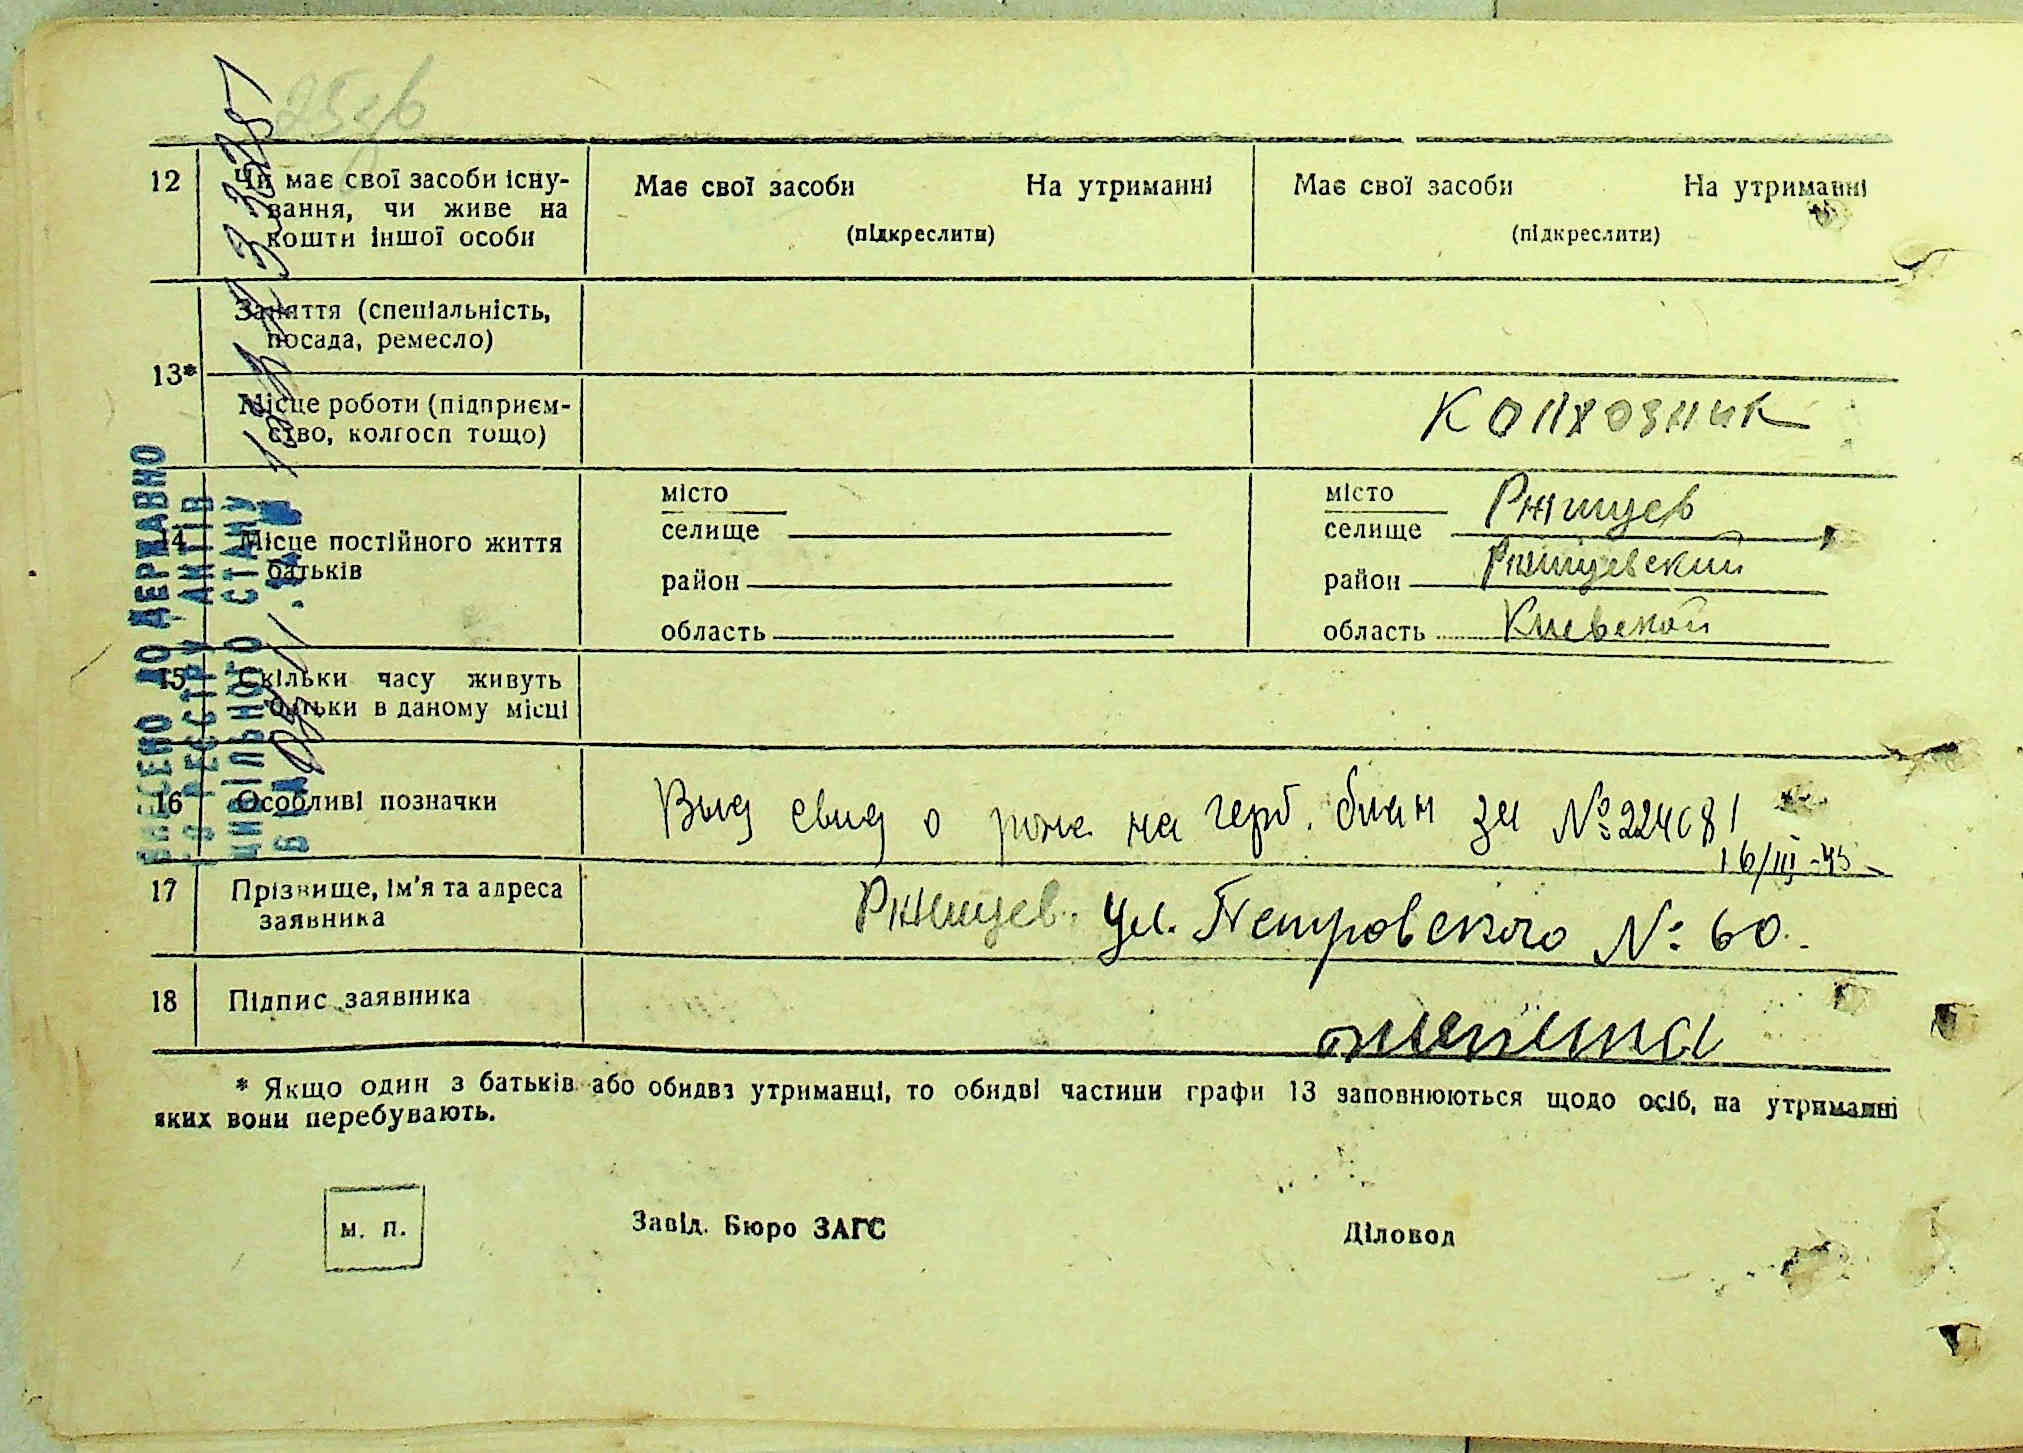 12 Чи має свої засоби існу-
вання, чи живе на
кошти іншої особи
Має свої засоби На утриманні
(підкреслити)
Має свої засоби На утриманні
(підкреслити)
13*
Заняття (спеціальність,
посада, ремесло)
Місце роботи (підприєм-
ство, колгосп тощо)
колхозник
14 Місце постійного життя
батьків
місто
селище
район
область
місто
селище Ржищев
район Ржищевский
область Киевской
15 Скільки часу живуть
батьки в даному місці
16 Особливі позначки
Выд свид о рож на герб. блан за №224681
16/III-45
17 Прізвище, ім'я та адреса
заявника
Ржищев. ул. Петровского № 60.
18 Підпис заявника
* Якщо один з батьків або обидва утриманці, то обидві частини графи 13 заповнюються щодо осіб, на утриманні
яких вони перебувають.
м. п.
Завід. Бюро ЗАГС
Діловод
ВНЕСЕНО ДО ДЕРЖАВНО
ГО РЕЄСТРУ АКТІВ
ЦИВІЛЬНОГО СТАНУ